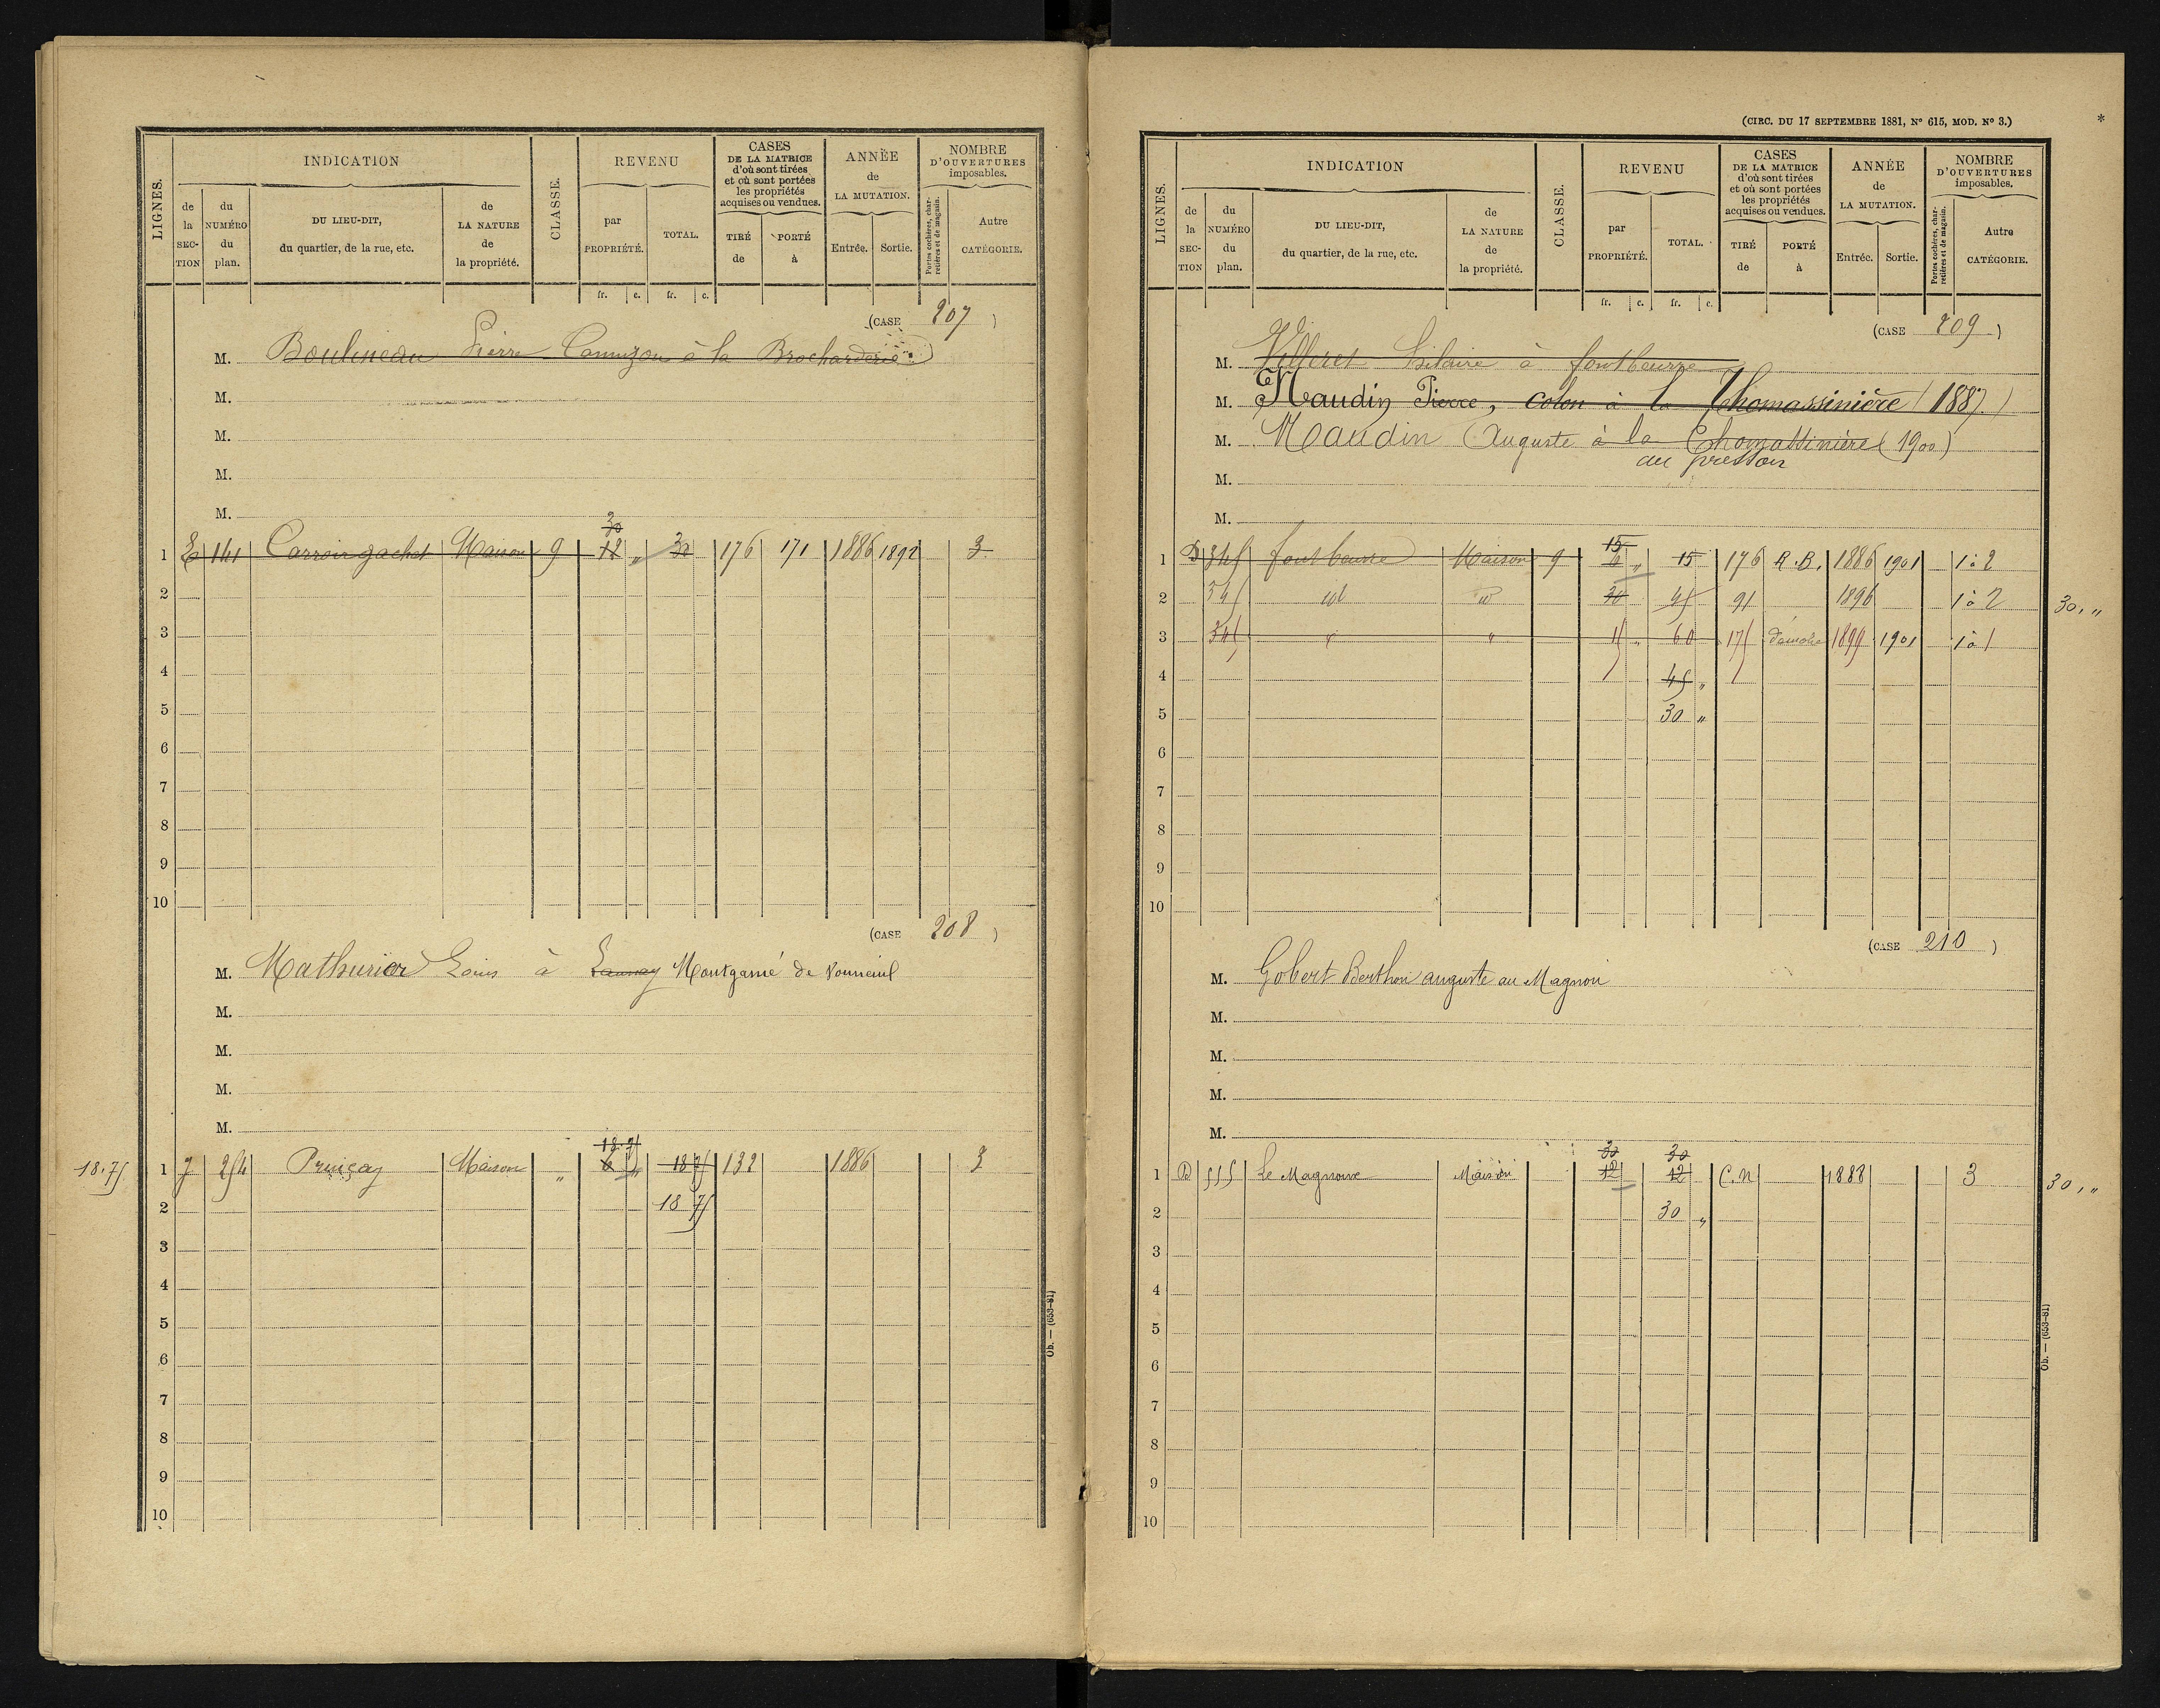 LIGNES.
INDICATION
de la SECTION
du NUMÉRO du plan.
DU LIEU-DIT, du quartier, de la rue, etc.
de LA NATURE de la propriété.
CLASSE.
REVENU
par PROPRIÉTÉ.
TOTAL.
CASES DE LA MATRICE d'où sont tirées et où sont portées les propriétés acquises ou vendues.
TIRÉ de
PORTÉ à
ANNÉE de LA MUTATION.
Entrée.
Sortie.
NOMBRE D'OUVERTURES imposables.
Portes cochères, charretières et de magasin.
Autre CATÉGORIE.
fr. c. fr. c.
(CASE 207)
M. Boulineau Pierre à la Brocharderie
M.
M.
M.
M.
30
1 E 141 Carroir gachet Maison 9 12 " 30 176 171 1886 1892 3
2
3
4
5
6
7
8
9
10
(CASE 208)
M. Mathurier Louis à Launay Montgamé de Vouneuil
M.
M.
M.
M.
18.75
18.75 1 254 Maison " 6 " 18 75 132 1886 3
2 18 75
3
4
5
6
7
8
9
10
Ob. — (653-81)
(CIRC. DU 17 SEPTEMBRE 1881, N° 615, MOD. N° 3.)
*
LIGNES.
INDICATION
de la SECTION
du NUMÉRO du plan.
DU LIEU-DIT, du quartier, de la rue, etc.
de LA NATURE de la propriété.
CLASSE.
REVENU
par PROPRIÉTÉ.
TOTAL.
CASES DE LA MATRICE d'où sont tirées et où sont portées les propriétés acquises ou vendues.
TIRÉ de
PORTÉ à
ANNÉE de LA MUTATION.
Entrée.
Sortie.
NOMBRE D'OUVERTURES imposables.
Portes cochères, charretières et de magasin.
Autre CATÉGORIE.
fr. c. fr. c.
(CASE 209)
M. Villeret hilaire à fontbeurre
M. Naudin Pierre, colon à la Thomassinière (1887.)
M. Naudin Auguste à la Thomassinière (1900)
au pressoir
M.
M.
15
1 D 345 fontbeurre Maison 9 6 " 15 176 R.B. 1886 1901 1 à 2
2 345 id id 30 45 91 1896 1 à 2 30, "
3 345 " " 15 " 60 175 démolie 1899 1901 1 à 1
4 45 "
5 30 "
6
7
8
9
10
(CASE 210)
M. Gobert Berthon auguste au Magnou
M.
M.
M.
M.
30 30
1 D 555 Le Magnoux Maison 12 12 C.N 1888 3 30, "
2 30 "
3
4
5
6
7
8
9
10
Ob. — (653-81)